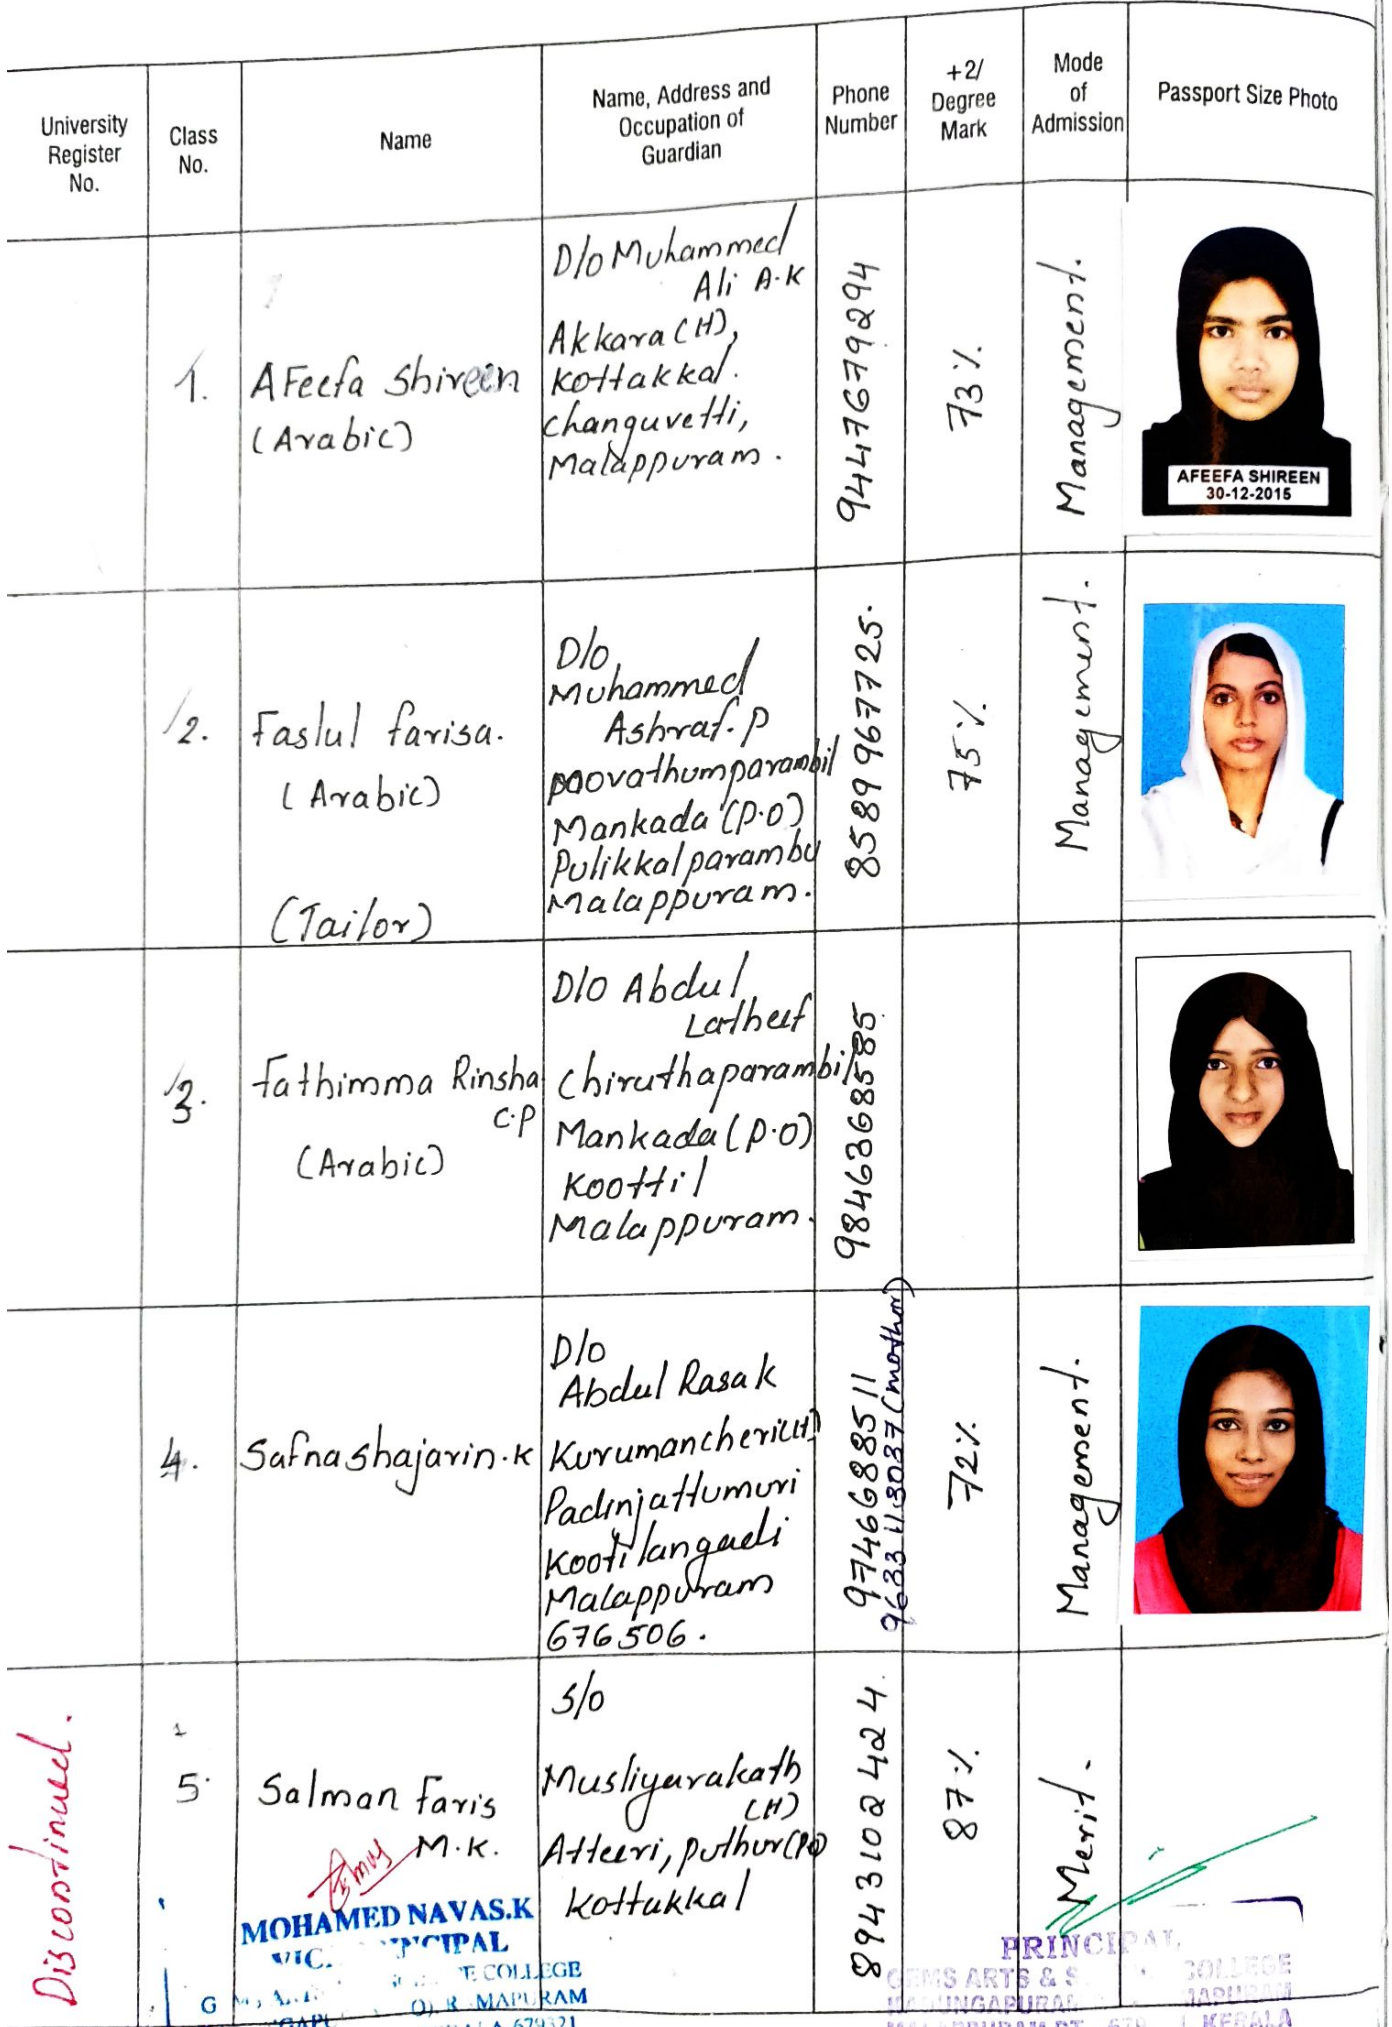 University
Register
No.
Class
No.
Name
Name, Address and
Occupation of
Guardian
Phone
Number
+2/
Degree
Mark
Mode
of
Admission
Passport Size Photo
1.
AFeefa Shireen
(Arabic)
D/o Muhammed
Ali A.K
Akkara (H),
Kottakkal.
changuvetti,
Malappuram.
9447679294
73%
Management.
AFEEFA SHIREEN
30-12-2015
2.
Faslul farisa.
(Arabic)
(Tailor)
D/o
Muhammed
Ashraf. P
poovathumparambil
Mankada (P.O)
Pulikkalparambu
Malappuram.
8589967725.
75%
Management.
3.
fathimma Rinsha
C.P
(Arabic)
D/O Abdul
Latheef
Chiruthaparambil
Mankada (P.O)
Koottil
Malappuram.
9846368585
4.
Safnashajarin.K
D/o
Abdul Rasak
Kurumancheri(H)
Padinjattumuri
Kootilangadi
Malappuram
676506.
9746688511
9633113037 (mother)
72%
Management.
Discontinued.
5
Salman Faris
M.K.
S/o
Musliyarakath
(H)
Atteeri, puthur(PO)
Kottakkal
8943102424.
87%
Merit.
MOHAMED NAVAS.K
COLLEGE
679321
PRINCIPAL
GEMS ARTS & S COLLEGE
KERALA